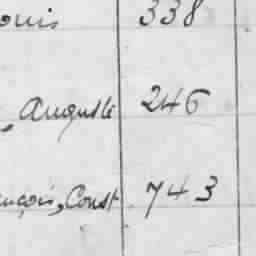 ouis 338
, Auguste 246
ançois, Const 743